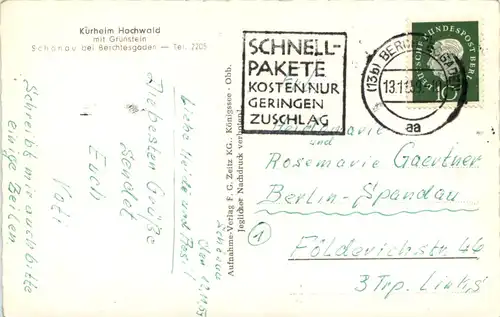 Kurheim Hochwald
mit Grünstein
Schönau bei Berchtesgaden — Tel. 2205
Schönau
den 12.11.59
Liebe Heide und Rosi!
Die besten Grüße
sendet
Euch
Vati
Schreibt mir auch bitte
einige Zeilen
Aufnahme-Verlag F. G. Zeitz KG., Königssee - Obb.
Jeglicher Nachdruck verboten
SCHNELL-
PAKETE
KOSTEN NUR
GERINGEN
ZUSCHLAG
(13b) BERCHTESGADEN
13.11.59
aa
DEUTSCHE BUNDESPOST BERLIN
10
und
Rosemarie Gaertner
Berlin-Spandau
1
Földerichstr. 46
3 Trp. Links